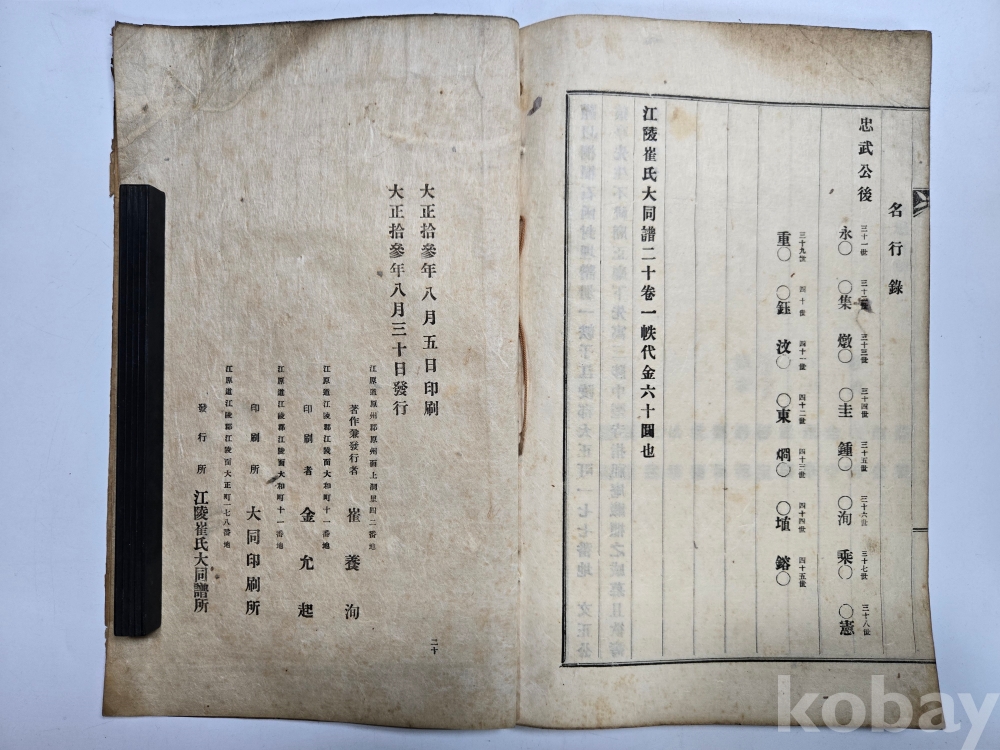 名行錄
忠武公後
三十一世 永〇
三十二世 〇集
三十三世 燉〇
三十四世 〇圭
三十五世 鍾〇
三十六世 〇洵
三十七世 乘〇
三十八世 〇憲
三十九世 重〇
四十世 〇鈺
四十一世 汶〇
四十二世 〇東
四十三世 烱〇
四十四世 〇埴
四十五世 鎔〇
江陵崔氏大同譜二十卷一帙代金六十圓也
大正拾參年八月五日印刷
大正拾參年八月三十日發行
江原道原州郡原州面上洞里四二番地
著作兼發行者 崔養洵
江原道江陵郡江陵面大和町十一番地
印刷者 金允起
江原道江陵郡江陵面大和町十一番地
印刷所 大同印刷所
江原道江陵郡江陵面大正町一七八番地
發行所 江陵崔氏大同譜所
二十
kobay